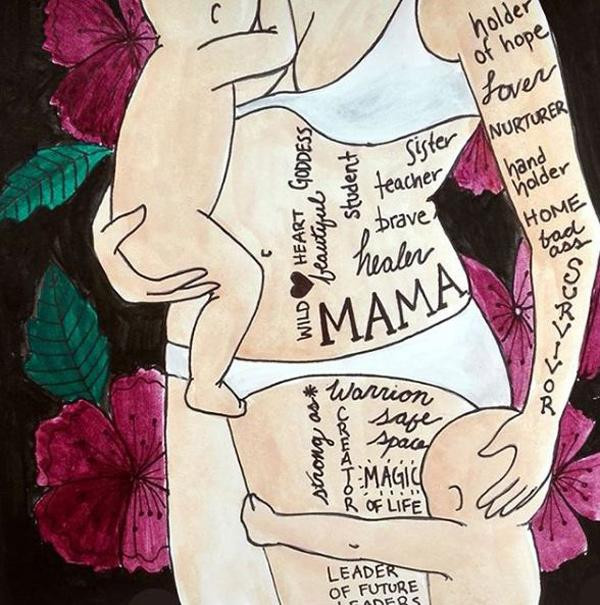 holder
of hope
Lover
NURTURER
hand
holder
HOME
bad
ass
SURVIVOR
sister
teacher
brave
healer
student
GODDESS
beautiful
WILD ♥ HEART
MAMA
Warrior
safe
space
strong as*
CREATOR
MAGIC
OF LIFE
LEADER
OF FUTURE
LEADERS